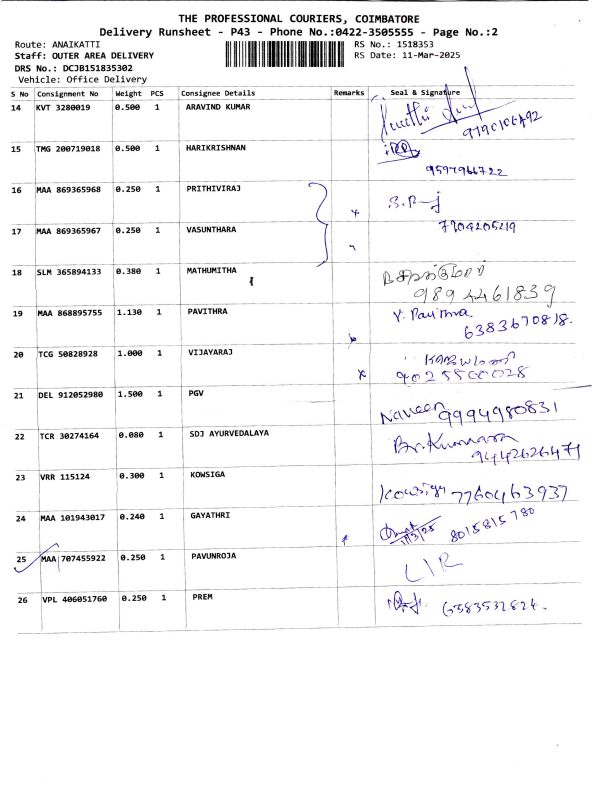 THE PROFESSIONAL COURIERS, COIMBATORE
Delivery Runsheet - P43 - Phone No.:0422-3505555 - Page No.:2
Route: ANAIKATTI RS No.: 1518353
Staff: OUTER AREA DELIVERY RS Date: 11-Mar-2025
DRS No.: DCJB151835302
Vehicle: Office Delivery
S No Consignment No Weight PCS Consignee Details Remarks Seal & Signature
14 KVT 3280019 0.500 1 ARAVIND KUMAR
15 TMG 200719018 0.500 1 HARIKRISHNAN
9597966722
16 MAA 869365968 0.250 1 PRITHIVIRAJ
17 MAA 869365967 0.250 1 VASUNTHARA 7904205219
18 SLM 365894133 0.380 1 MATHUMITHA
9894461839
19 MAA 868895755 1.130 1 PAVITHRA V. Pavithra
6383670818.
20 TCG 50828928 1.000 1 VIJAYARAJ
9025500028
21 DEL 912052980 1.500 1 PGV
Naveen 9994980831
22 TCR 30274164 0.080 1 SDJ AYURVEDALAYA
9442626471
23 VRR 115124 0.300 1 KOWSIGA
Kowsiga 7760463937
24 MAA 101943017 0.240 1 GAYATHRI
11/3/25 8015815780
25 MAA 707455922 0.250 1 PAVUNROJA
26 VPL 406051760 0.250 1 PREM
6383532824.